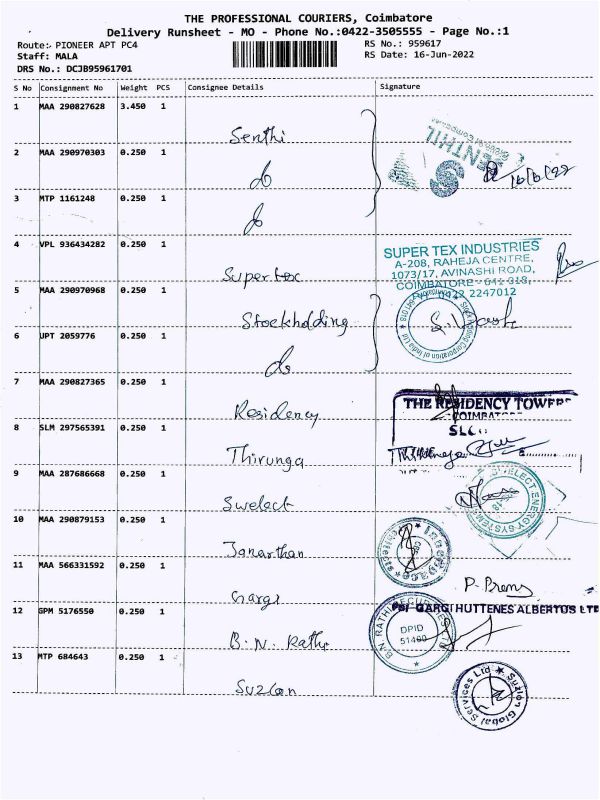 THE PROFESSIONAL COURIERS, Coimbatore
Delivery Runsheet - MO - Phone No.:0422-3505555 - Page No.:1
Route: PIONEER APT PC4
RS No.: 959617
Staff: MALA
RS Date: 16-Jun-2022
DRS No.: DCJB95961701
S No Consignment No Weight PCS Consignee Details Signature
1 MAA 290827628 3.450 1
Senthi
SENTHIL
2 MAA 290970303 0.250 1
do
16/6/22
3 MTP 1161248 0.250 1
do
4 VPL 936434282 0.250 1
Supertex
SUPER TEX INDUSTRIES
A-208, RAHEJA CENTRE,
1073/17, AVINASHI ROAD,
COIMBATORE - 641 018,
0422 2247012
5 MAA 290970968 0.250 1
Stockholding
6 UPT 2059776 0.250 1
do
7 MAA 290827365 0.250 1
Residency
THE RESIDENCY TOWERS
COIMBATORE
8 SLM 297565391 0.250 1
Thirunga
9 MAA 287686668 0.250 1
Swelect
SWELECT ENERGY SYSTEMS
10 MAA 290879153 0.250 1
Janarthan
11 MAA 566331592 0.250 1
Gargi
P. Prem
For GARGI HUTTENES ALBERTUS LTD
12 GPM 5176550 0.250 1
B.N. Rathi
B.N. RATHI SECURITIES LTD
DPID
51400
13 MTP 684643 0.250 1
Suzlon
Suzlon Global Services Ltd